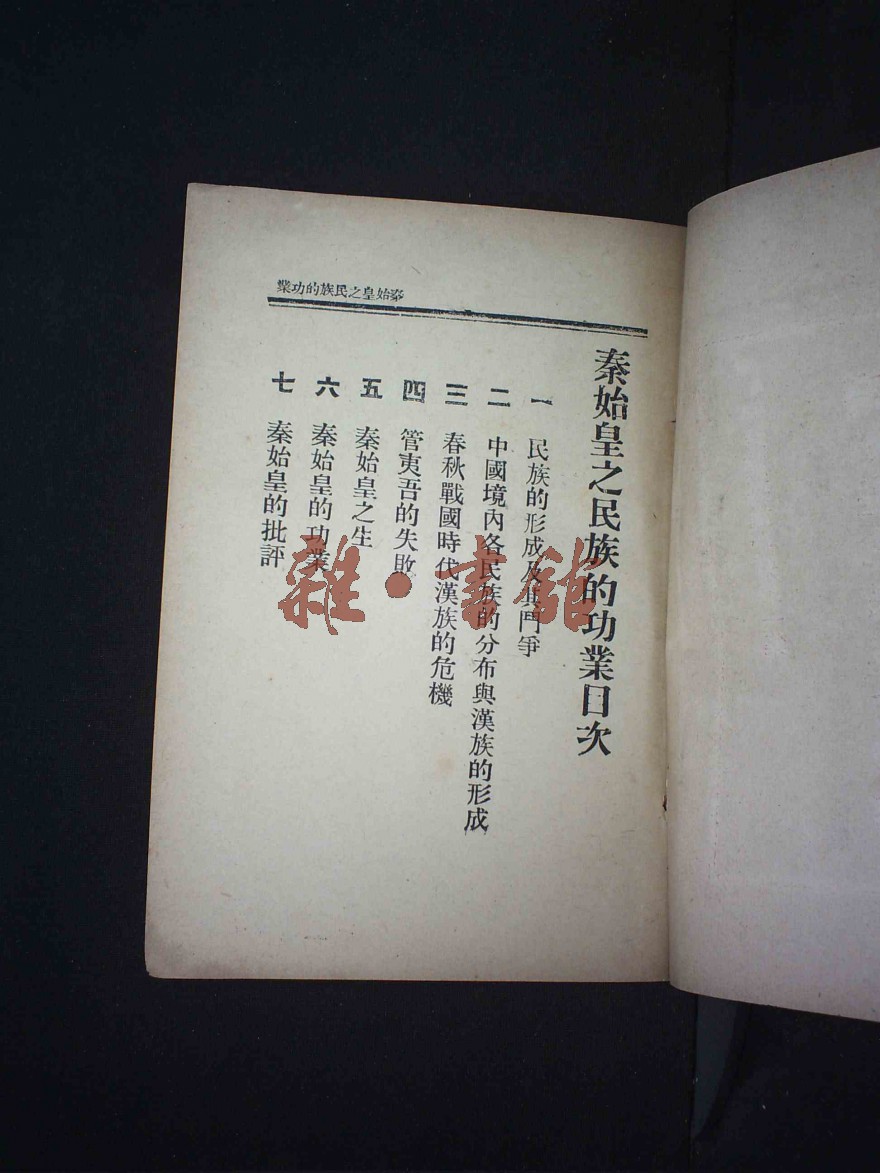 業功的族民之皇始秦
秦始皇之民族的功業目次
一 民族的形成及其鬥爭
二 中國境內各民族的分布與漢族的形成
三 春秋戰國時代漢族的危機
四 管夷吾的失敗
五 秦始皇之生
六 秦始皇的功業
七 秦始皇的批評
雜·書館